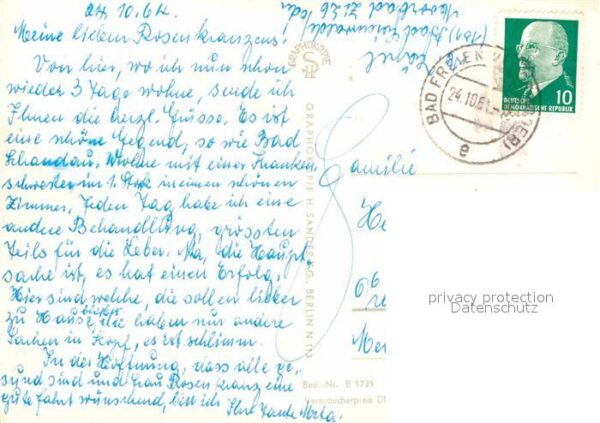 24.10.64.
Meine lieben Rosenkranzens!
Von hier, wo ich nun schon
wieder 3 Tage wohne, sende ich
Ihnen die herzl. Grüsse. Es ist
eine schöne Gegend, so wie Bad
Schandau. Wohne mit einer Kranken
schwester im 1. Stck in einem schönen
Zimmer. Jeden Tag habe ich eine
andere Behandlung, grössten
Teils für die Leber. Na, die Haupt
sache ist, es hat einen Erfolg.
Hier sind welche, die sollen lieber
zu Hause bleiben, die haben nur andere
Sachen im Kopf, es ist schlimm.
In der Hoffnung, dass alle ge-
sund sind und Frau Rosenkranz eine
gute Fahrt wünschend, bin ich Ihre Tante Meta.
(Oder)
Moorbad Zi 26
Bad Freienwalde
GRAPHOKOPIE
GRAPHOKOPIE H. SANDER KG, BERLIN N 113
Best.-Nr. B 1739
Verbraucherpreis
BAD FREIENW
24.10.6
e
DEUTSCHE
DEMOKRATISCHE REPUBLIK
10
Familie
He
Mer
privacy protection
Datenschutz